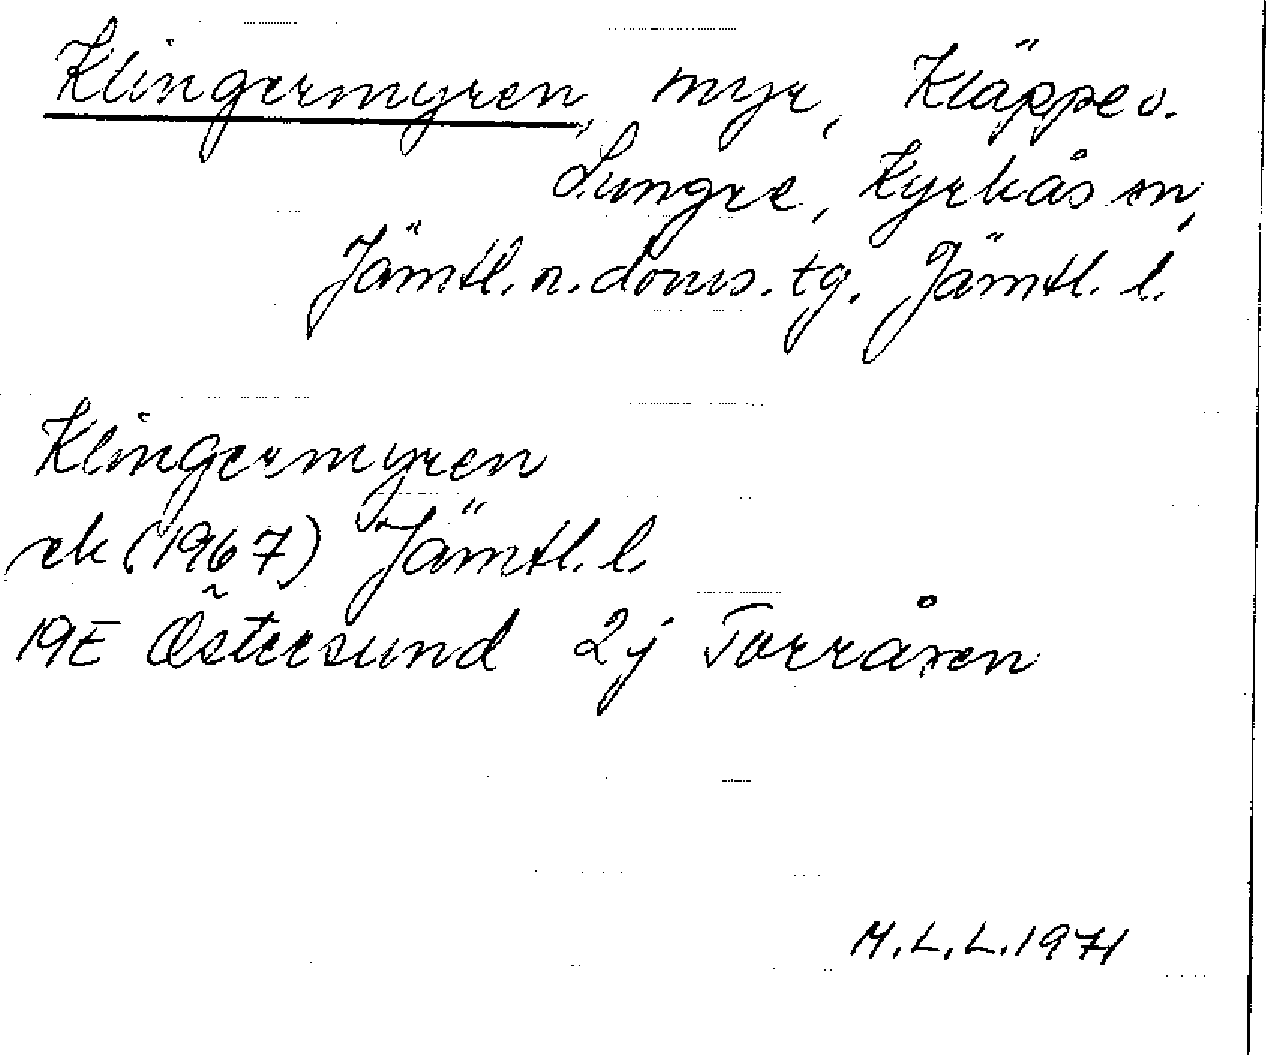 Klingermyren, myr, Kläppe o.
Lungre, Kyrkås sn,
Jämtl. n. doms. tg. Jämtl. l.
Klingermyren
ek (1967) Jämtl. l.
19E Östersund 2j Torråsen
M.L.L. 1971